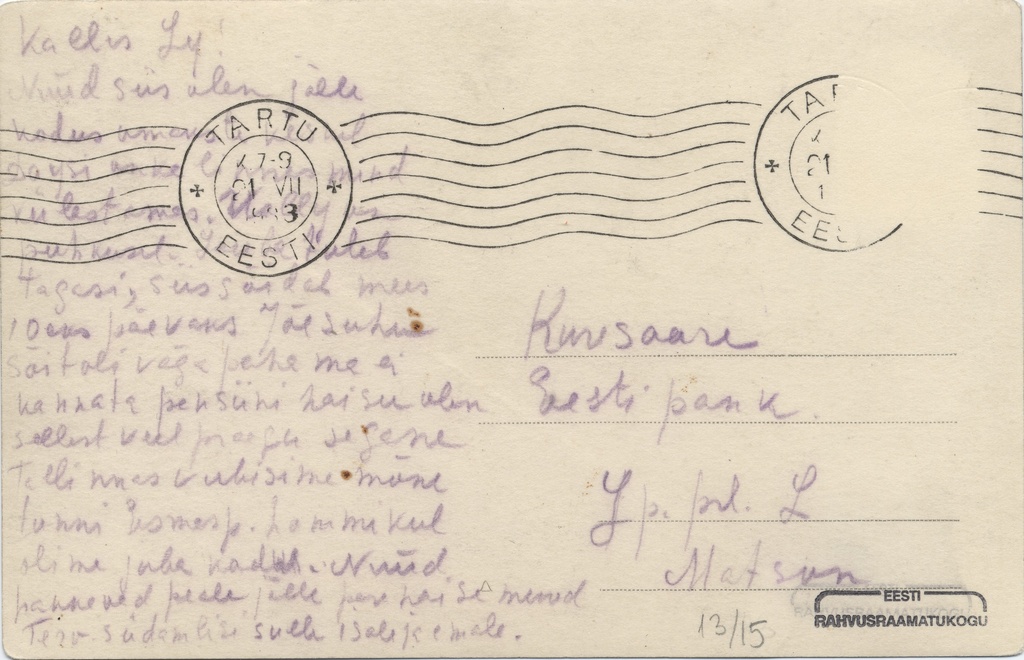 Kallis Ly!
Nüüd siis olen jälle
kodus
mind
külastamas.
puhkusel. tuleb
tagasi, siis sõidab mees
10neks päevaks Jõesuhu
sõit oli väga paha ma ei
kannata pensiini haisu olen
sellest veel praegu segane
Tallinnas viibisime mõne
tunni Esmasp. hommikul
olime juba kodus. Nüüd
panneved peale jälle
Terv. südamlisi sulle isale ja emale.
TARTU
7-9
21 VII
EESTI
TAR
21
1
EES
Kuressaare
Eesti pank.
Lp. prl. L
Matson
13/15
EESTI
RAHVUSRAAMATUKOGU